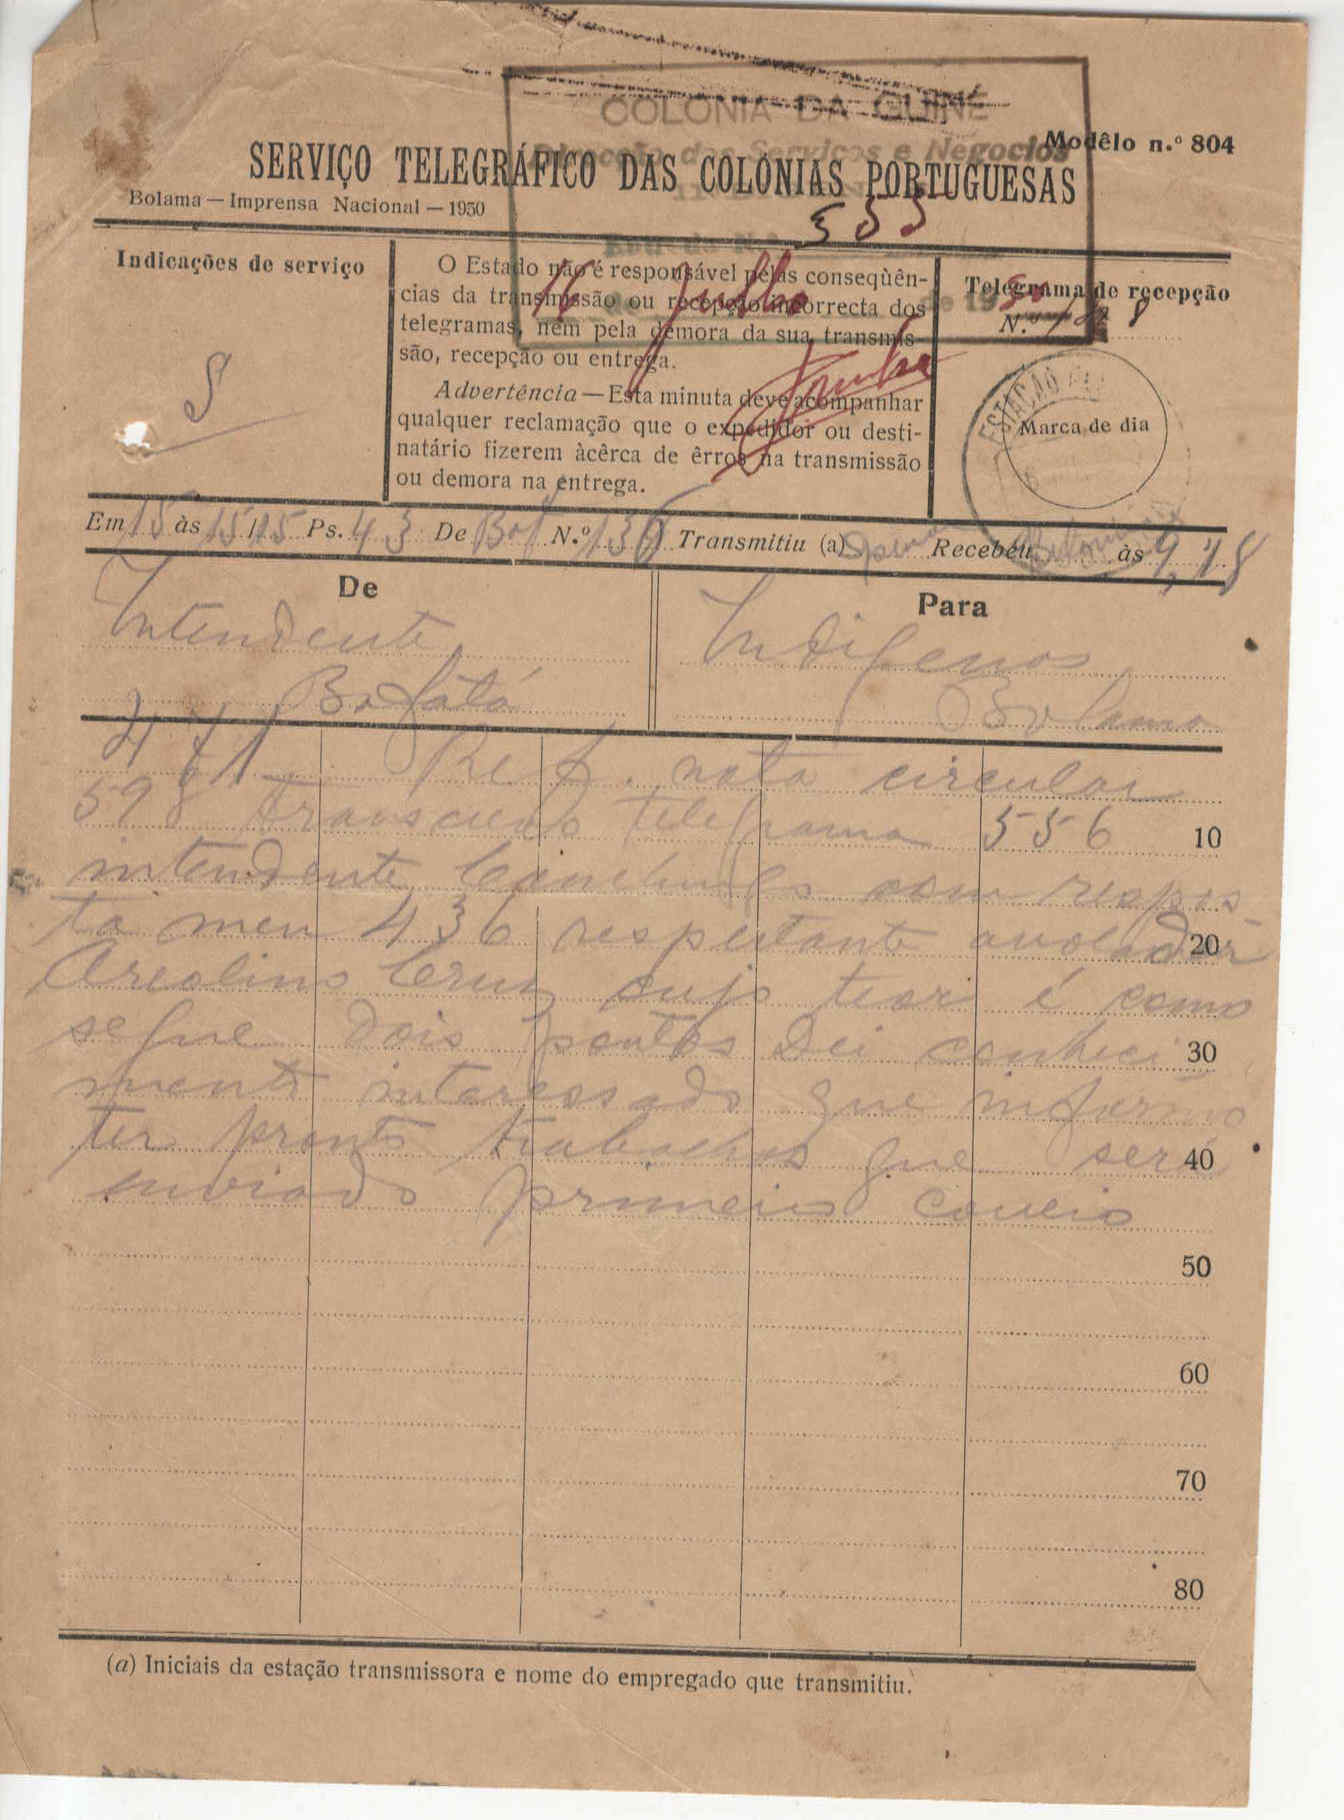 COLONIA DA GUINÉ
Direcção dos Serviços e Negocios
Modêlo n.º 804
SERVIÇO TELEGRÁFICO DAS COLÓNIAS PORTUGUESAS
Bolama — Imprensa Nacional — 1950
535
Indicações de serviço
S
O Estado não é responsável pelas conseqüên-
cias da transmissão ou recepção incorrecta dos
telegramas, nem pela demora da sua transmis-
são, recepção ou entrega.
Advertência — Esta minuta deve acompanhar
qualquer reclamação que o expedidor ou desti-
natário fizerem àcêrca de êrros na transmissão
ou demora na entrega.
16 Julho de 1950
Telegrama de recepção
N.º
ESTAÇÃO
Marca de dia
Em 15 às 15/15 Ps. 43 De Baf N.º 136 Transmitiu (a) Recebeu às 9,18
De
Intendente
Bafatá
Para
Indigenas
Bolama
471 Ref. nota circular
598 transcrevo telegrama 556 10
intendente Canchungo com respos-
ta meu 436 respeitante 20
Areolino Cruz cujo teor é como
segue dois pontos Dei conheci 30
mento interessado que informo
ter pronto trabalhos que será 40
enviado primeiro correio
50
60
70
80
(a) Iniciais da estação transmissora e nome do empregado que transmitiu.